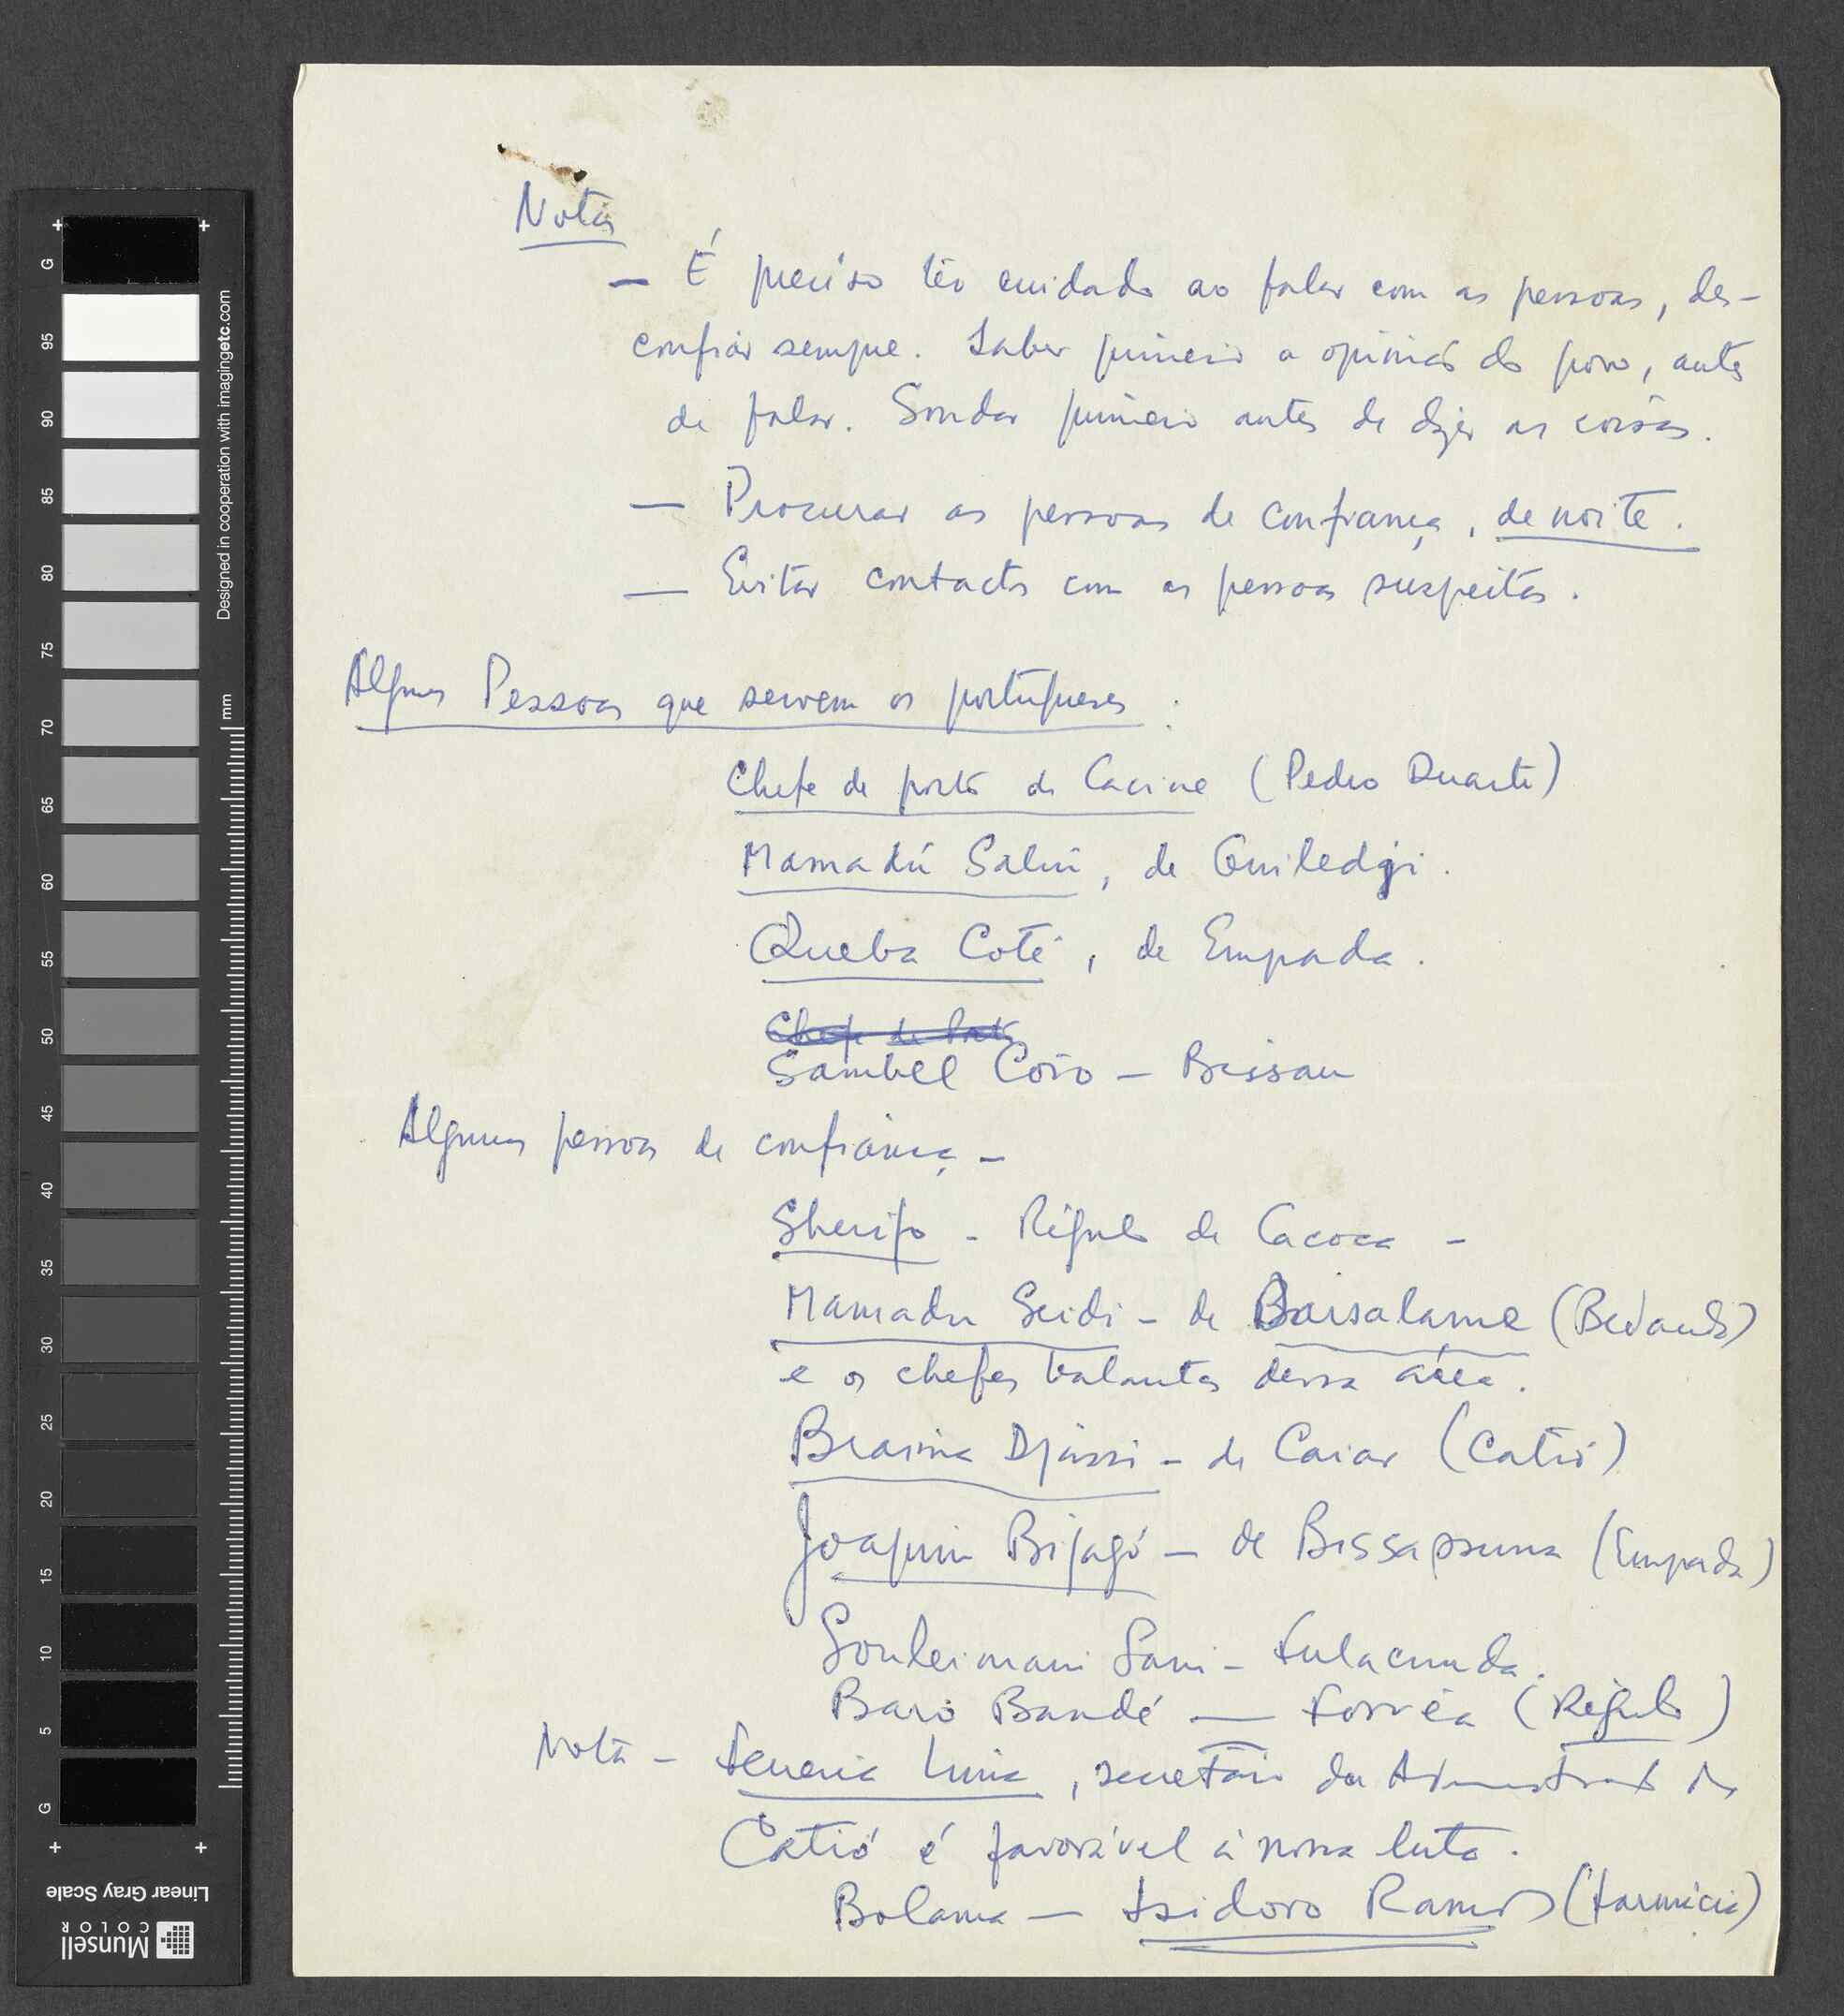 Notas
— É preciso ter cuidado ao falar com as pessoas, des-
confiar sempre. Saber primeiro a opinião do povo, antes
de falar. Sondar primeiro antes de dizer as coisas.
— Procurar as pessoas de confiança, de noite.
— Evitar contactos com as pessoas suspeitas.
Algumas Pessoas que servem os portugueses :
Chefe de posto de Cacine (Pedro Duarte)
Mamadú Saliu, de Guiledgi.
Queba Coté, de Empada.
Chefe de Posto
Sambel Coio — Bissau
Algumas pessoas de confiança —
Sherifo - Régulo de Cacoca -
Mamadu Seidi - de Darsalame (Bedanda)
e os chefes balantas dessa área.
Braima Djassi - de Caiar (Catió)
Joaquim Bijagó — de Bissassuma (Empada)
Souleimani Sani - Fulacunda.
Baró Bandé — Forréa (Régulo)
Nota - , secretário da de
Catió é favorável à nossa luta.
Bolama — Isidoro Ramos (Farmácia)
G 95 90 85 80 75 70 65 60 55 50 45 40 35 30 25 20 15 10 5 G
Designed in cooperation with imagingetc.com
mm
Linear Gray Scale
Munsell
COLOR